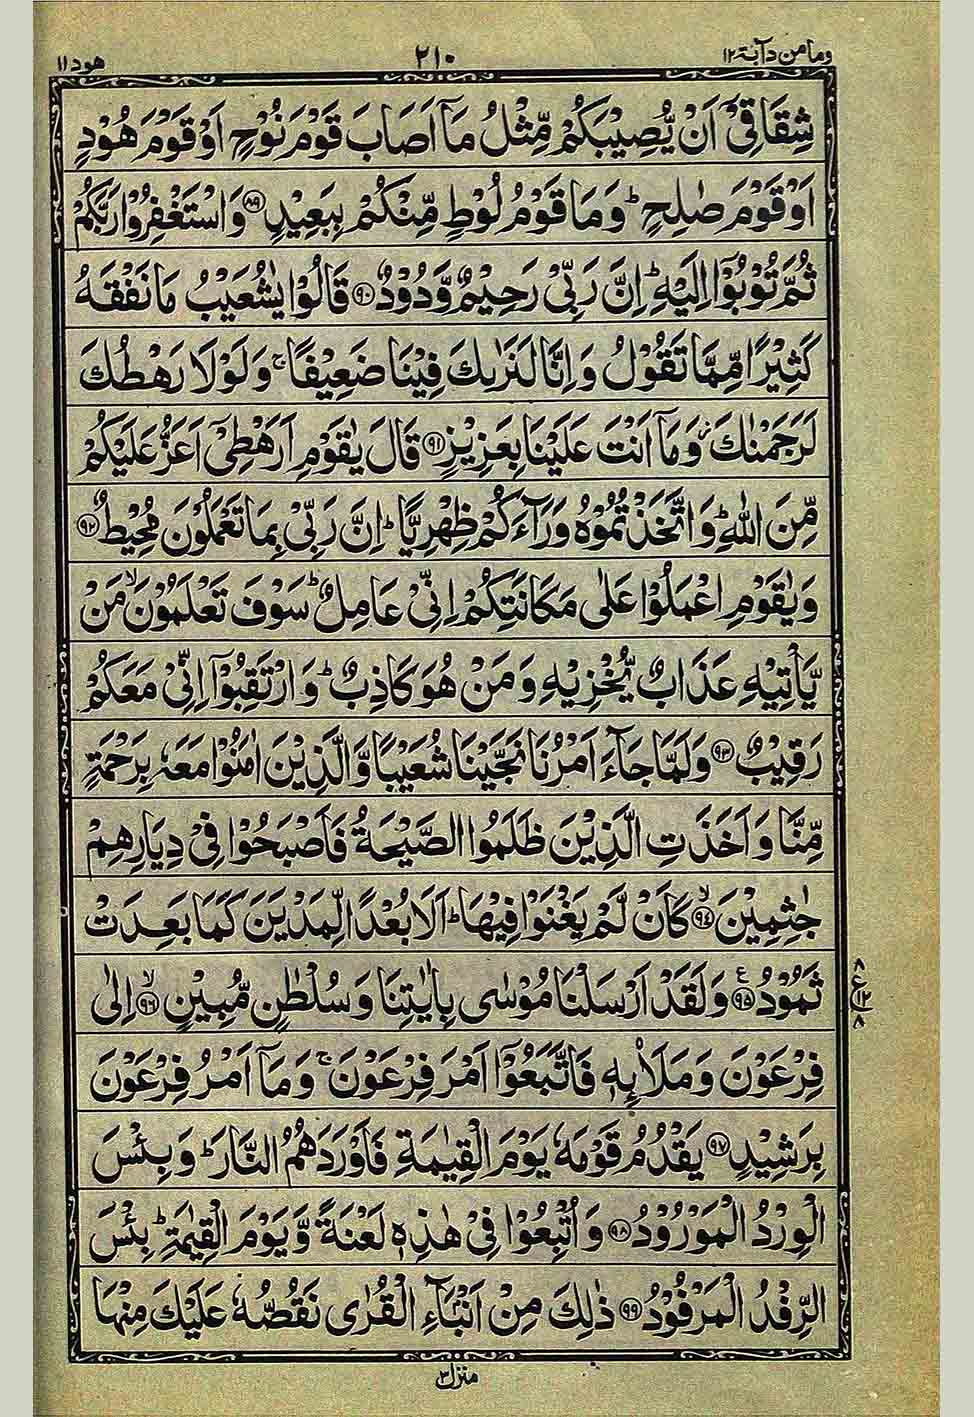 وما من دآبة ١٢ ٢١٠ هود ١١
شِقَاقِیْۤ اَنْ یُّصِیْبَكُمْ مِّثْلُ مَاۤ اَصَابَ قَوْمَ نُوْحٍ اَوْ قَوْمَ هُوْدٍ
اَوْ قَوْمَ صٰلِحٍ ؕ وَ مَا قَوْمُ لُوْطٍ مِّنْكُمْ بِبَعِیْدٍ ﴿۸۹﴾ وَ اسْتَغْفِرُوْا رَبَّكُمْ
ثُمَّ تُوْبُوْۤا اِلَیْهِ ؕ اِنَّ رَبِّیْ رَحِیْمٌ وَّدُوْدٌ ﴿۹۰﴾ قَالُوْا یٰشُعَیْبُ مَا نَفْقَهُ
كَثِیْرًا مِّمَّا تَقُوْلُ وَ اِنَّا لَنَرٰىكَ فِیْنَا ضَعِیْفًا ۚ وَ لَوْ لَا رَهْطُكَ
لَرَجَمْنٰكَ ؗ وَ مَاۤ اَنْتَ عَلَیْنَا بِعَزِیْزٍ ﴿۹۱﴾ قَالَ یٰقَوْمِ اَرَهْطِیْۤ اَعَزُّ عَلَیْكُمْ
مِّنَ اللّٰهِ ؕ وَ اتَّخَذْتُمُوْهُ وَرَآءَكُمْ ظِهْرِیًّا ؕ اِنَّ رَبِّیْ بِمَا تَعْمَلُوْنَ مُحِیْطٌ ﴿۹۲﴾
وَ یٰقَوْمِ اعْمَلُوْا عَلٰی مَكَانَتِكُمْ اِنِّیْ عَامِلٌ ؕ سَوْفَ تَعْلَمُوْنَ ۙ مَنْ
یَّاْتِیْهِ عَذَابٌ یُّخْزِیْهِ وَ مَنْ هُوَ كَاذِبٌ ؕ وَ ارْتَقِبُوْۤا اِنِّیْ مَعَكُمْ
رَقِیْبٌ ﴿۹۳﴾ وَ لَمَّا جَآءَ اَمْرُنَا نَجَّیْنَا شُعَیْبًا وَّ الَّذِیْنَ اٰمَنُوْا مَعَهٗ بِرَحْمَةٍ
مِّنَّا وَ اَخَذَتِ الَّذِیْنَ ظَلَمُوا الصَّیْحَةُ فَاَصْبَحُوْا فِیْ دِیَارِهِمْ
جٰثِمِیْنَ ﴿۹۴﴾ۙ كَاَنْ لَّمْ یَغْنَوْا فِیْهَا ؕ اَلَا بُعْدًا لِّمَدْیَنَ كَمَا بَعِدَتْ
ثَمُوْدُ ﴿۹۵﴾ع وَ لَقَدْ اَرْسَلْنَا مُوْسٰی بِاٰیٰتِنَا وَ سُلْطٰنٍ مُّبِیْنٍ ﴿۹۶﴾ۙ اِلٰی
۸ ع ۱۲ ۸
فِرْعَوْنَ وَ مَلَاۡىِٕهٖ فَاتَّبَعُوْۤا اَمْرَ فِرْعَوْنَ ۚ وَ مَاۤ اَمْرُ فِرْعَوْنَ
بِرَشِیْدٍ ﴿۹۷﴾ یَقْدُمُ قَوْمَهٗ یَوْمَ الْقِیٰمَةِ فَاَوْرَدَهُمُ النَّارَ ؕ وَ بِئْسَ
الْوِرْدُ الْمَوْرُوْدُ ﴿۹۸﴾ وَ اُتْبِعُوْا فِیْ هٰذِهٖ لَعْنَةً وَّ یَوْمَ الْقِیٰمَةِ ؕ بِئْسَ
الرِّفْدُ الْمَرْفُوْدُ ﴿۹۹﴾ ذٰلِكَ مِنْ اَنْۢبَآءِ الْقُرٰی نَقُصُّهٗ عَلَیْكَ مِنْهَا
منزل ۳